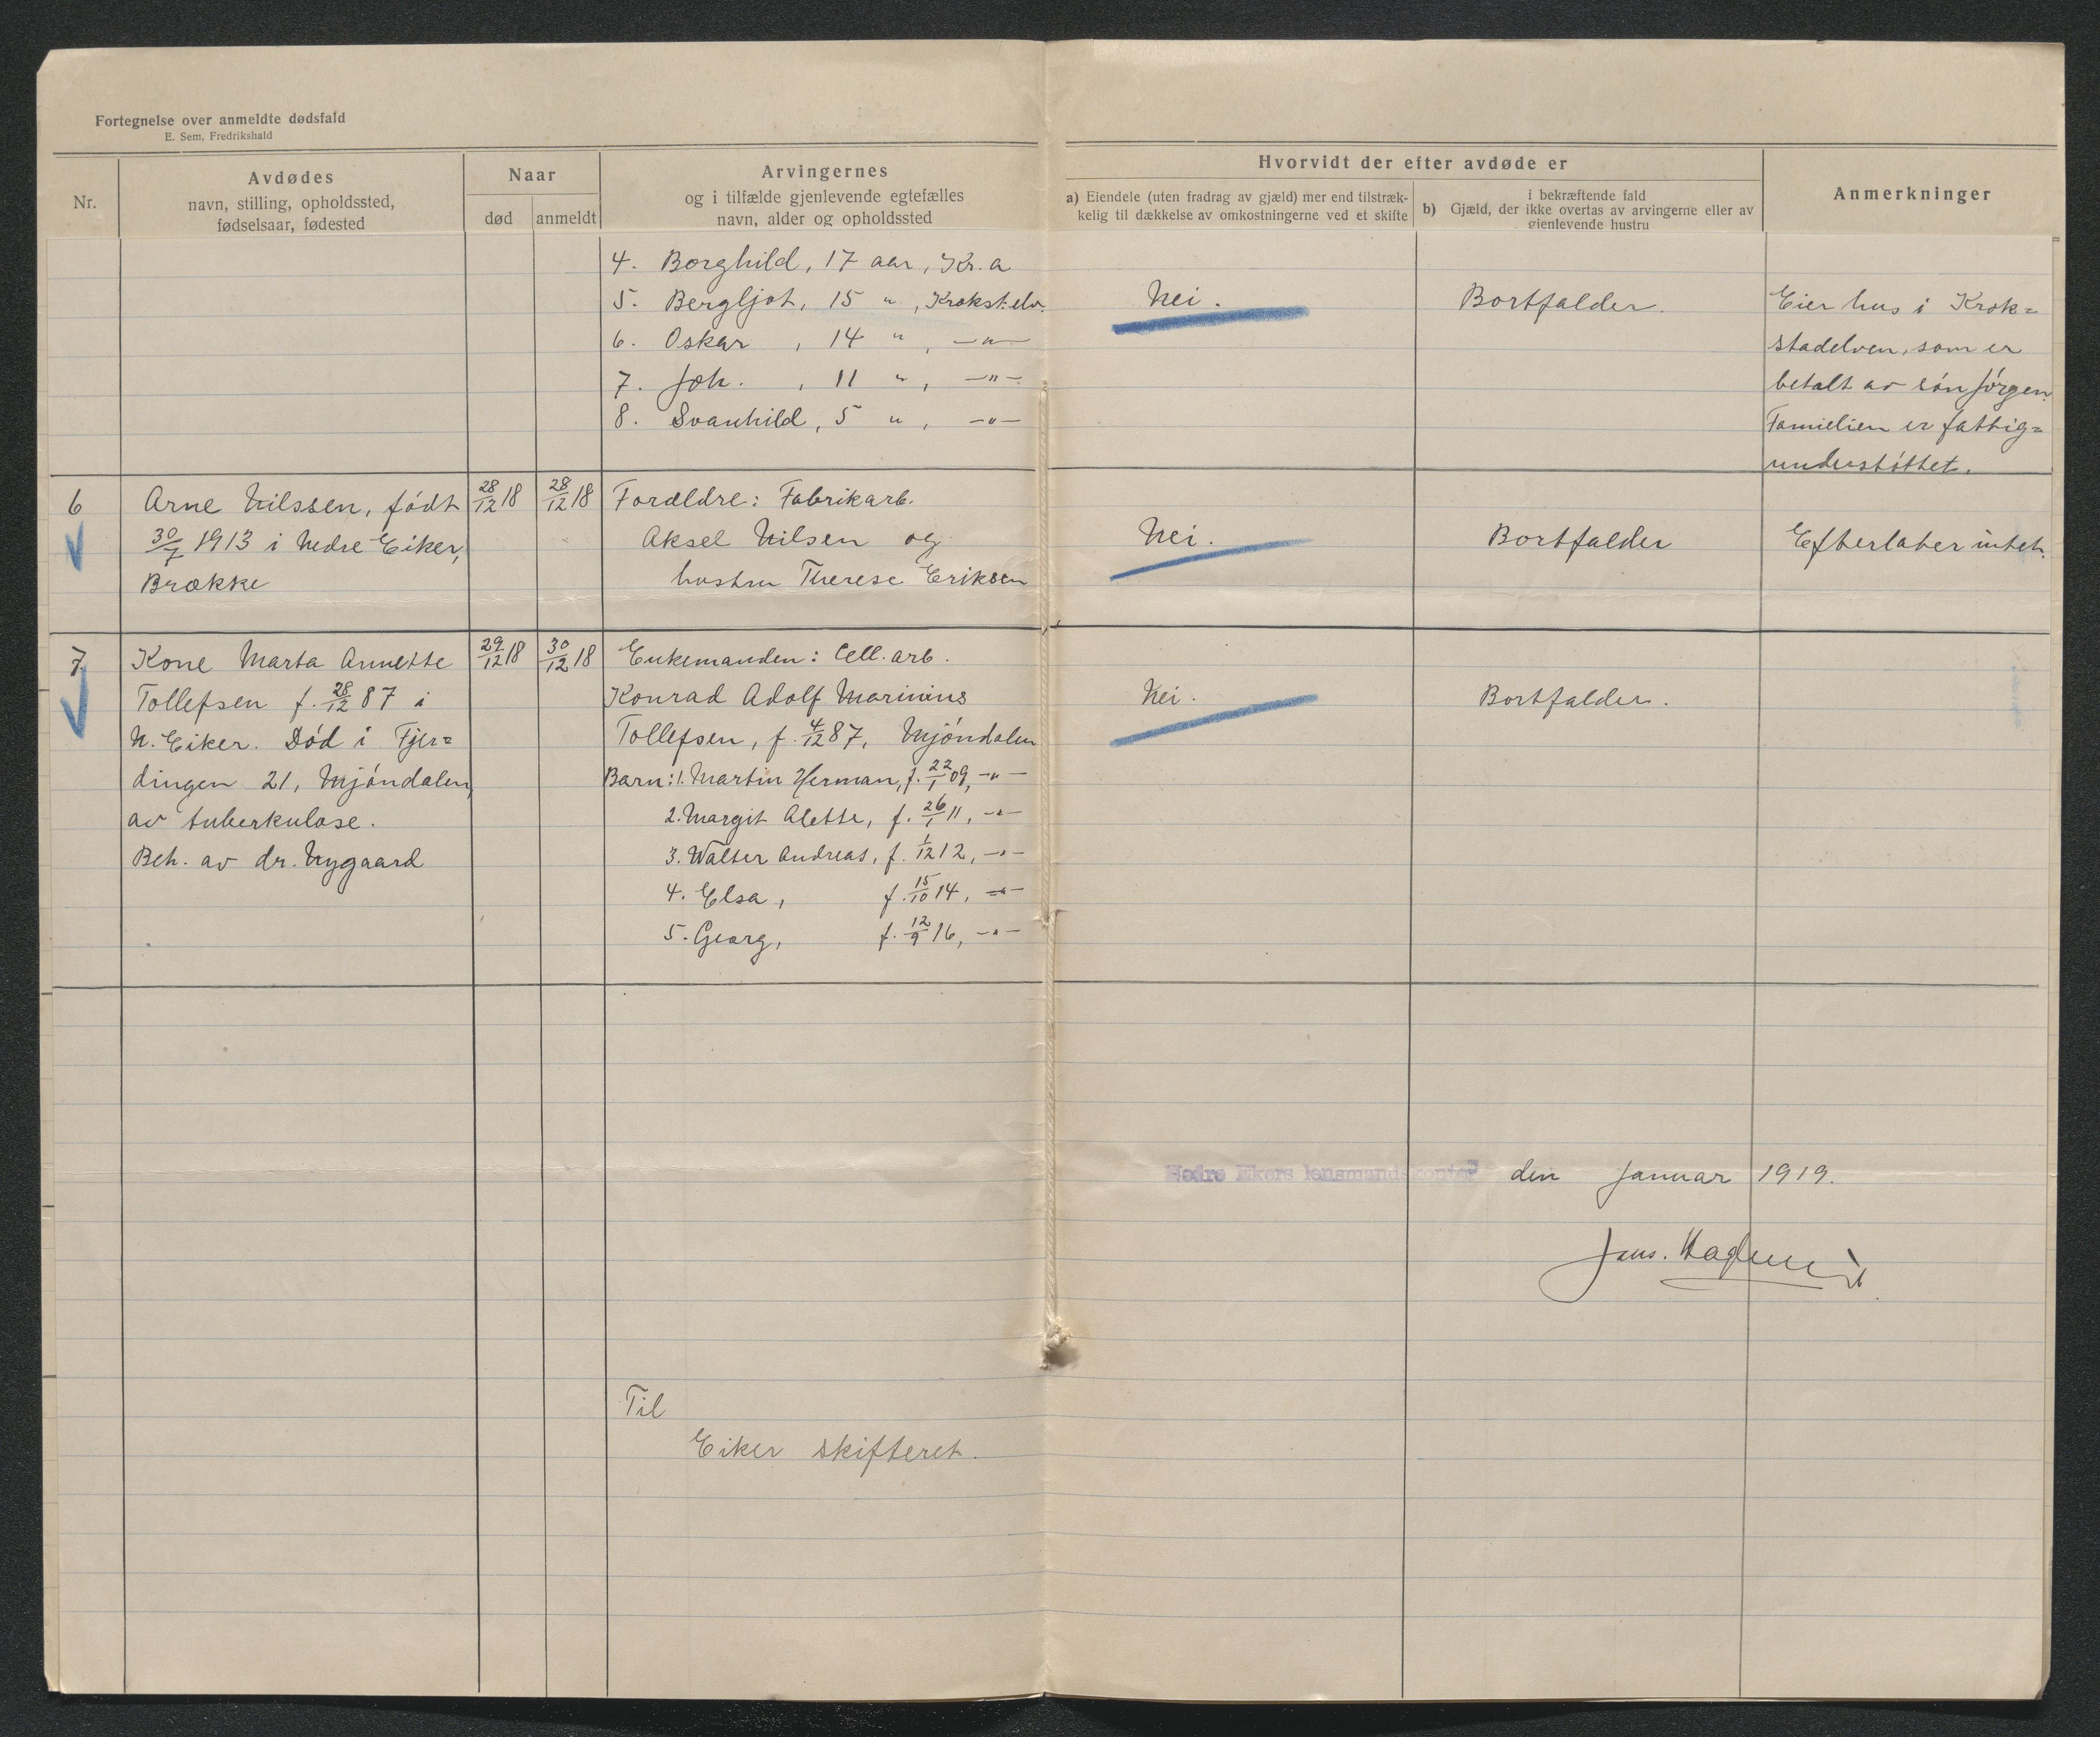 Fortegnelse over anmeldte dødsfald
E. Sem, Fredrikshald
Nr.
Avdødes
navn, stilling, opholdssted,
fødselsaar, fødested
Naar
død
anmeldt
Arvingernes
og i tilfælde gjenlevende egtefælles
navn, alder og opholdssted
Hvorvidt der efter avdøde er
a) Eiendele (uten fradrag av gjæld) mer end tilstræk-
kelig til dækkelse av omkostningerne ved et skifte
i bekræftende fald
b) Gjæld, der ikke overtas av arvingerne eller av
gjenlevende hustru
Anmerkninger
4. Borghild, 17 aar, Kr.a
5. Bergljot, 15 " , Krokst.elv.
6. Oskar , 14 " , —"—
7. Joh. , 11 " , —"—
8. Svanhild, 5 " , —"—
Nei.
Bortfalder.
Eier hus i Krok=
stadelven, som er
betalt av søn Jørgen.
Familien er fattig=
understøttet.
6
Arne Nilssen, født
30/7 1913 i Nedre Eiker,
Brække
28/12 18
28/12 18
Forældre: Fabrikarb.
Aksel Nilsen og
hustru Therese Eriksen
Nei.
Bortfalder
Efterlater intet.
7
Kone Marta Annette
Tollefsen f. 28/12 87 i
N. Eiker. Død i Fjer=
dingen 21, Mjøndalen,
av tuberkulose.
Beh. av dr. Nygaard
29/12 18
30/12 18
Enkemanden: Cell. arb.
Konrad Adolf Marinius
Tollefsen, f. 4/12 87, Mjøndalen
Barn: 1. Martin Herman, f. 22/1 09, —"—
2. Margit Alette, f. 26/1 11, —"—
3. Walter Andreas, f. 1/12 12, —"—
4. Elsa, f. 15/10 14, —"—
5. Georg, f. 12/9 16, —"—
Nei.
Bortfalder.
Nedre Ekers lensmandskontor den Januar 1919.
Til
Eiker skifteret.